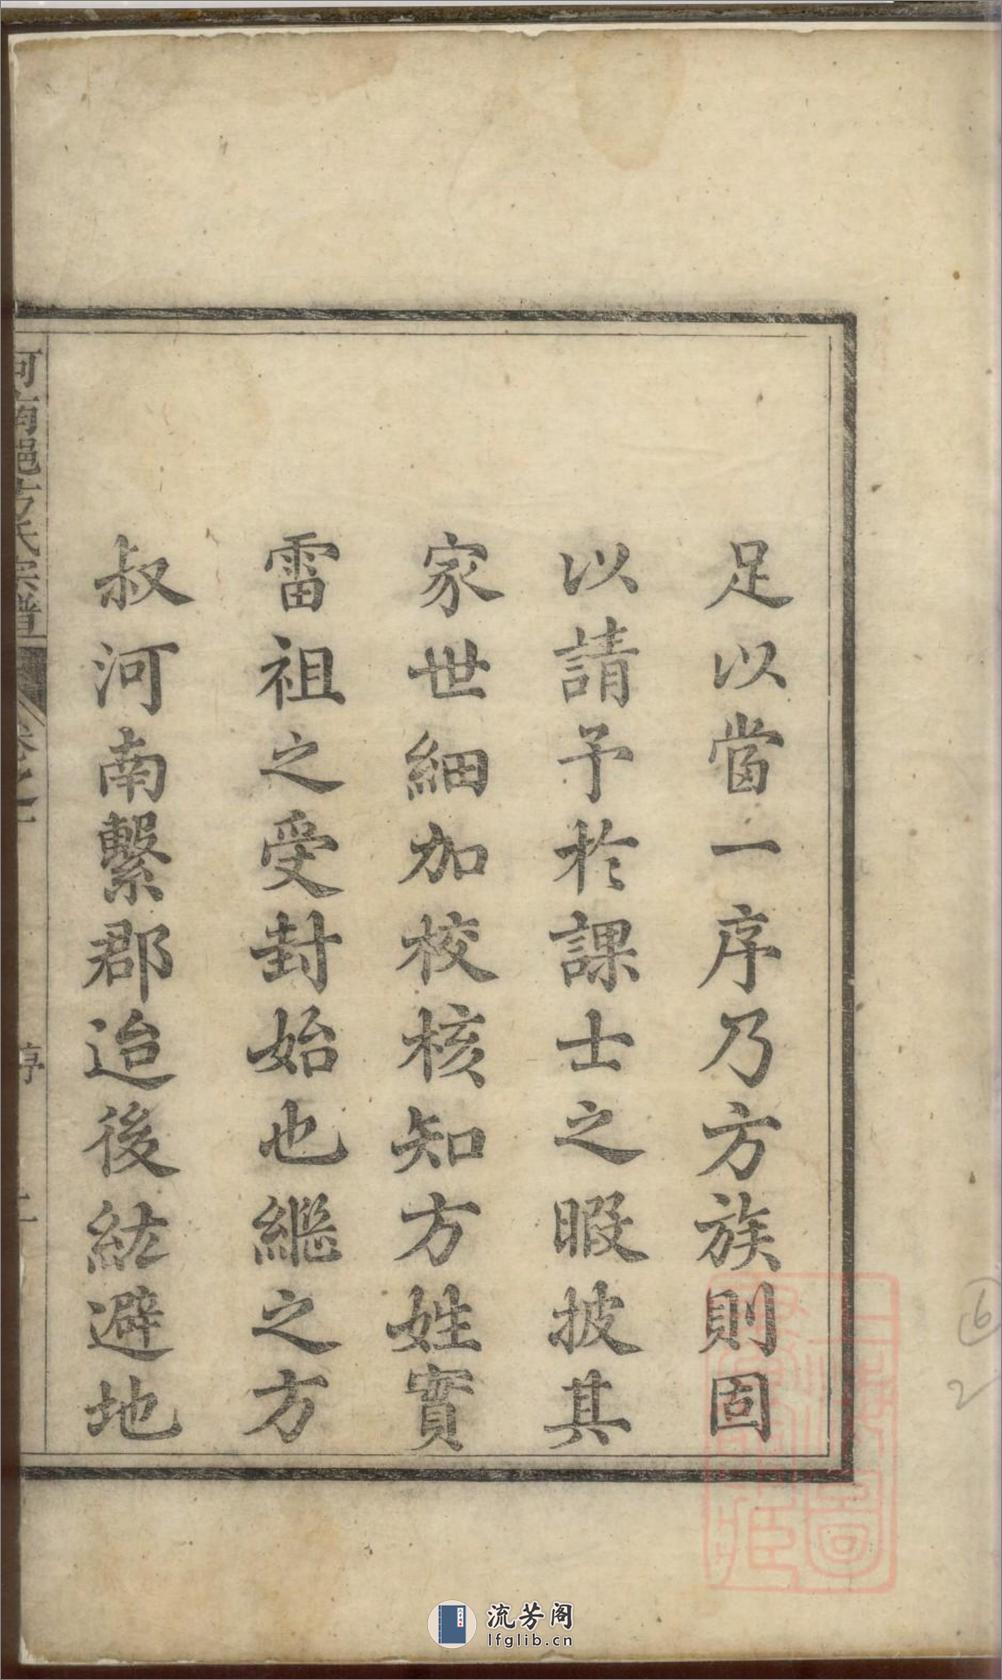 足以當一序乃方族則固
以請予於課士之暇披其
家世細加校核知方姓實
雷祖之受封始也繼之方
叔河南繫郡迨後紘避地
河南郡方氏宗譜
卷之一
序
二
⑥
2
流芳阁
lfglib.cn